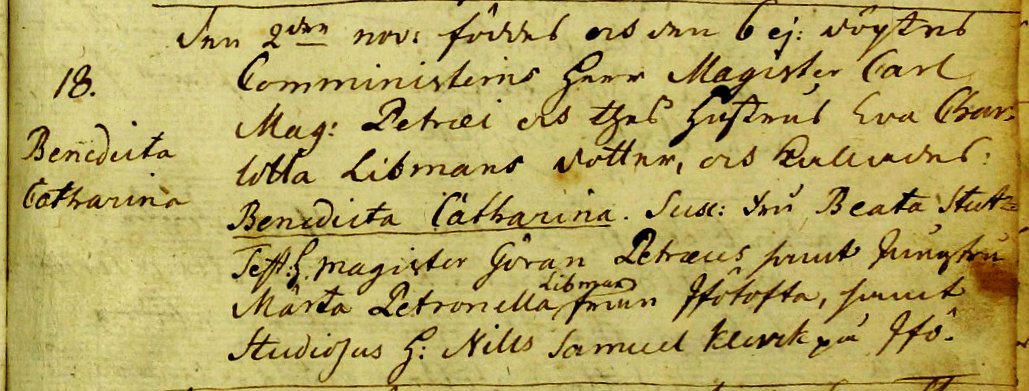 Den 2den nov: föddes och den 6 ej: döptes
18.
Comministerns Herr Magister Carl
Mag: Petræi och thes hustrus Eva Char-
Benedicta
lotta Libmans dotter, och kallades:
Catharina
Benedicta Catharina. Susc: fru Beata Stutz
Test: H. magister Göran Petræus samt Jungfru
Libman
Märta Petronella från Ifötofta, samt
Studiosus H: Nills Samuel Klerck på Ifö.